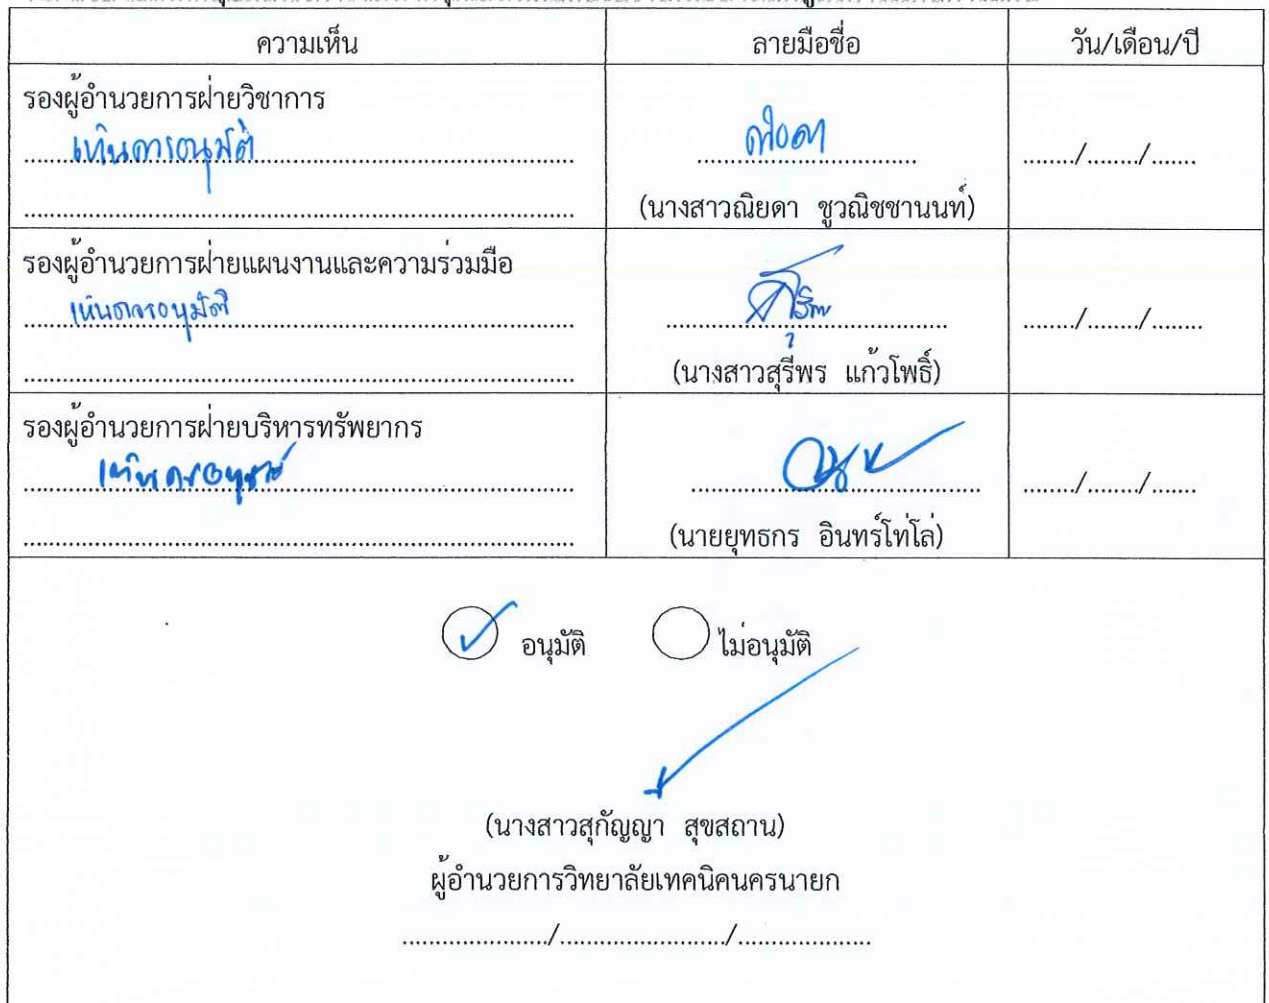 ความเห็น ลายมือชื่อ วัน/เดือน/ปี
รองผู้อำนวยการฝ่ายวิชาการ
เห็นควรอนุมัติ
......../......../.......
(นางสาวณิยดา ชูวณิชชานนท์)
รองผู้อำนวยการฝ่ายแผนงานและความร่วมมือ
เห็นควรอนุมัติ
......../......../........
(นางสาวสุรีพร แก้วโพธิ์)
รองผู้อำนวยการฝ่ายบริหารทรัพยากร
เห็นควรอนุมัติ
......../......../.......
(นายยุทธกร อินทร์โท่โล่)
อนุมัติ ไม่อนุมัติ
(นางสาวสุกัญญา สุขสถาน)
ผู้อำนวยการวิทยาลัยเทคนิคนครนายก
....................../........................./....................